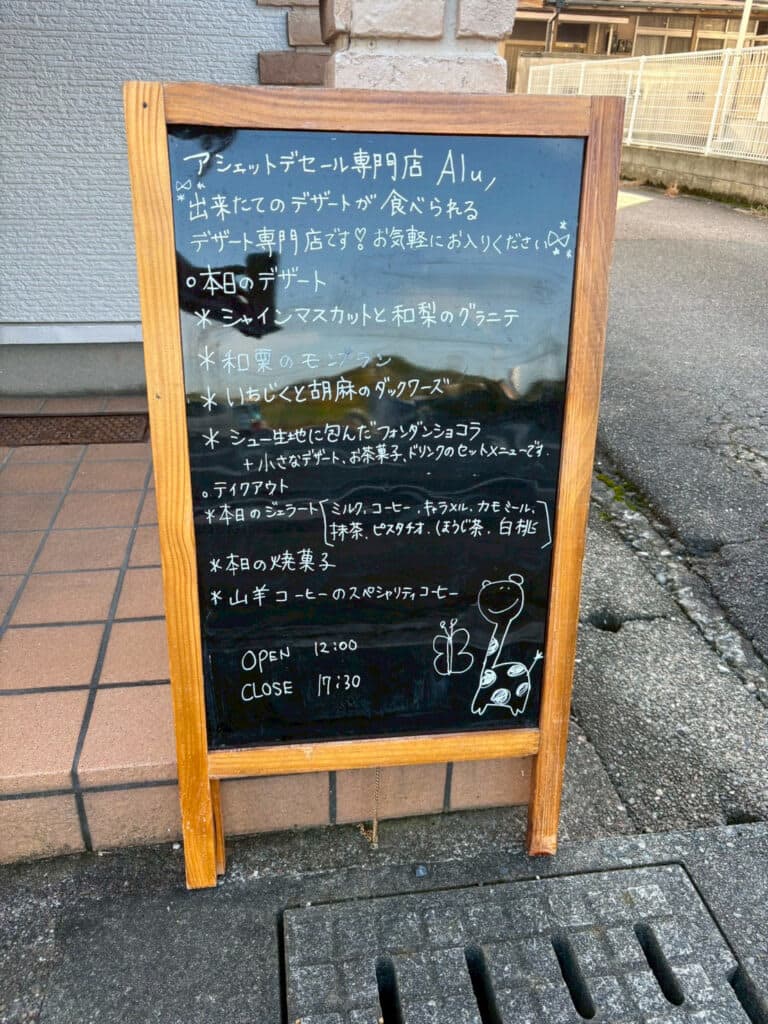 アシェットデセール専門店 Alu,
出来たてのデザートが食べられる
デザート専門店です♡お気軽にお入りください
○本日のデザート
＊シャインマスカットと和梨のグラニテ
＊和栗のモンブラン
＊いちじくと胡麻のダックワーズ
＊シュー生地に包んだフォンダンショコラ
+小さなデザート、お茶菓子、ドリンクのセットメニューです.
○テイクアウト
＊本日のジェラート[ミルク、コーヒー、キャラメル、カモミール、
抹茶、ピスタチオ、ほうじ茶、白桃]
＊本日の焼菓子
＊山羊コーヒーのスペシャリティコーヒー
OPEN 12:00
CLOSE 17:30